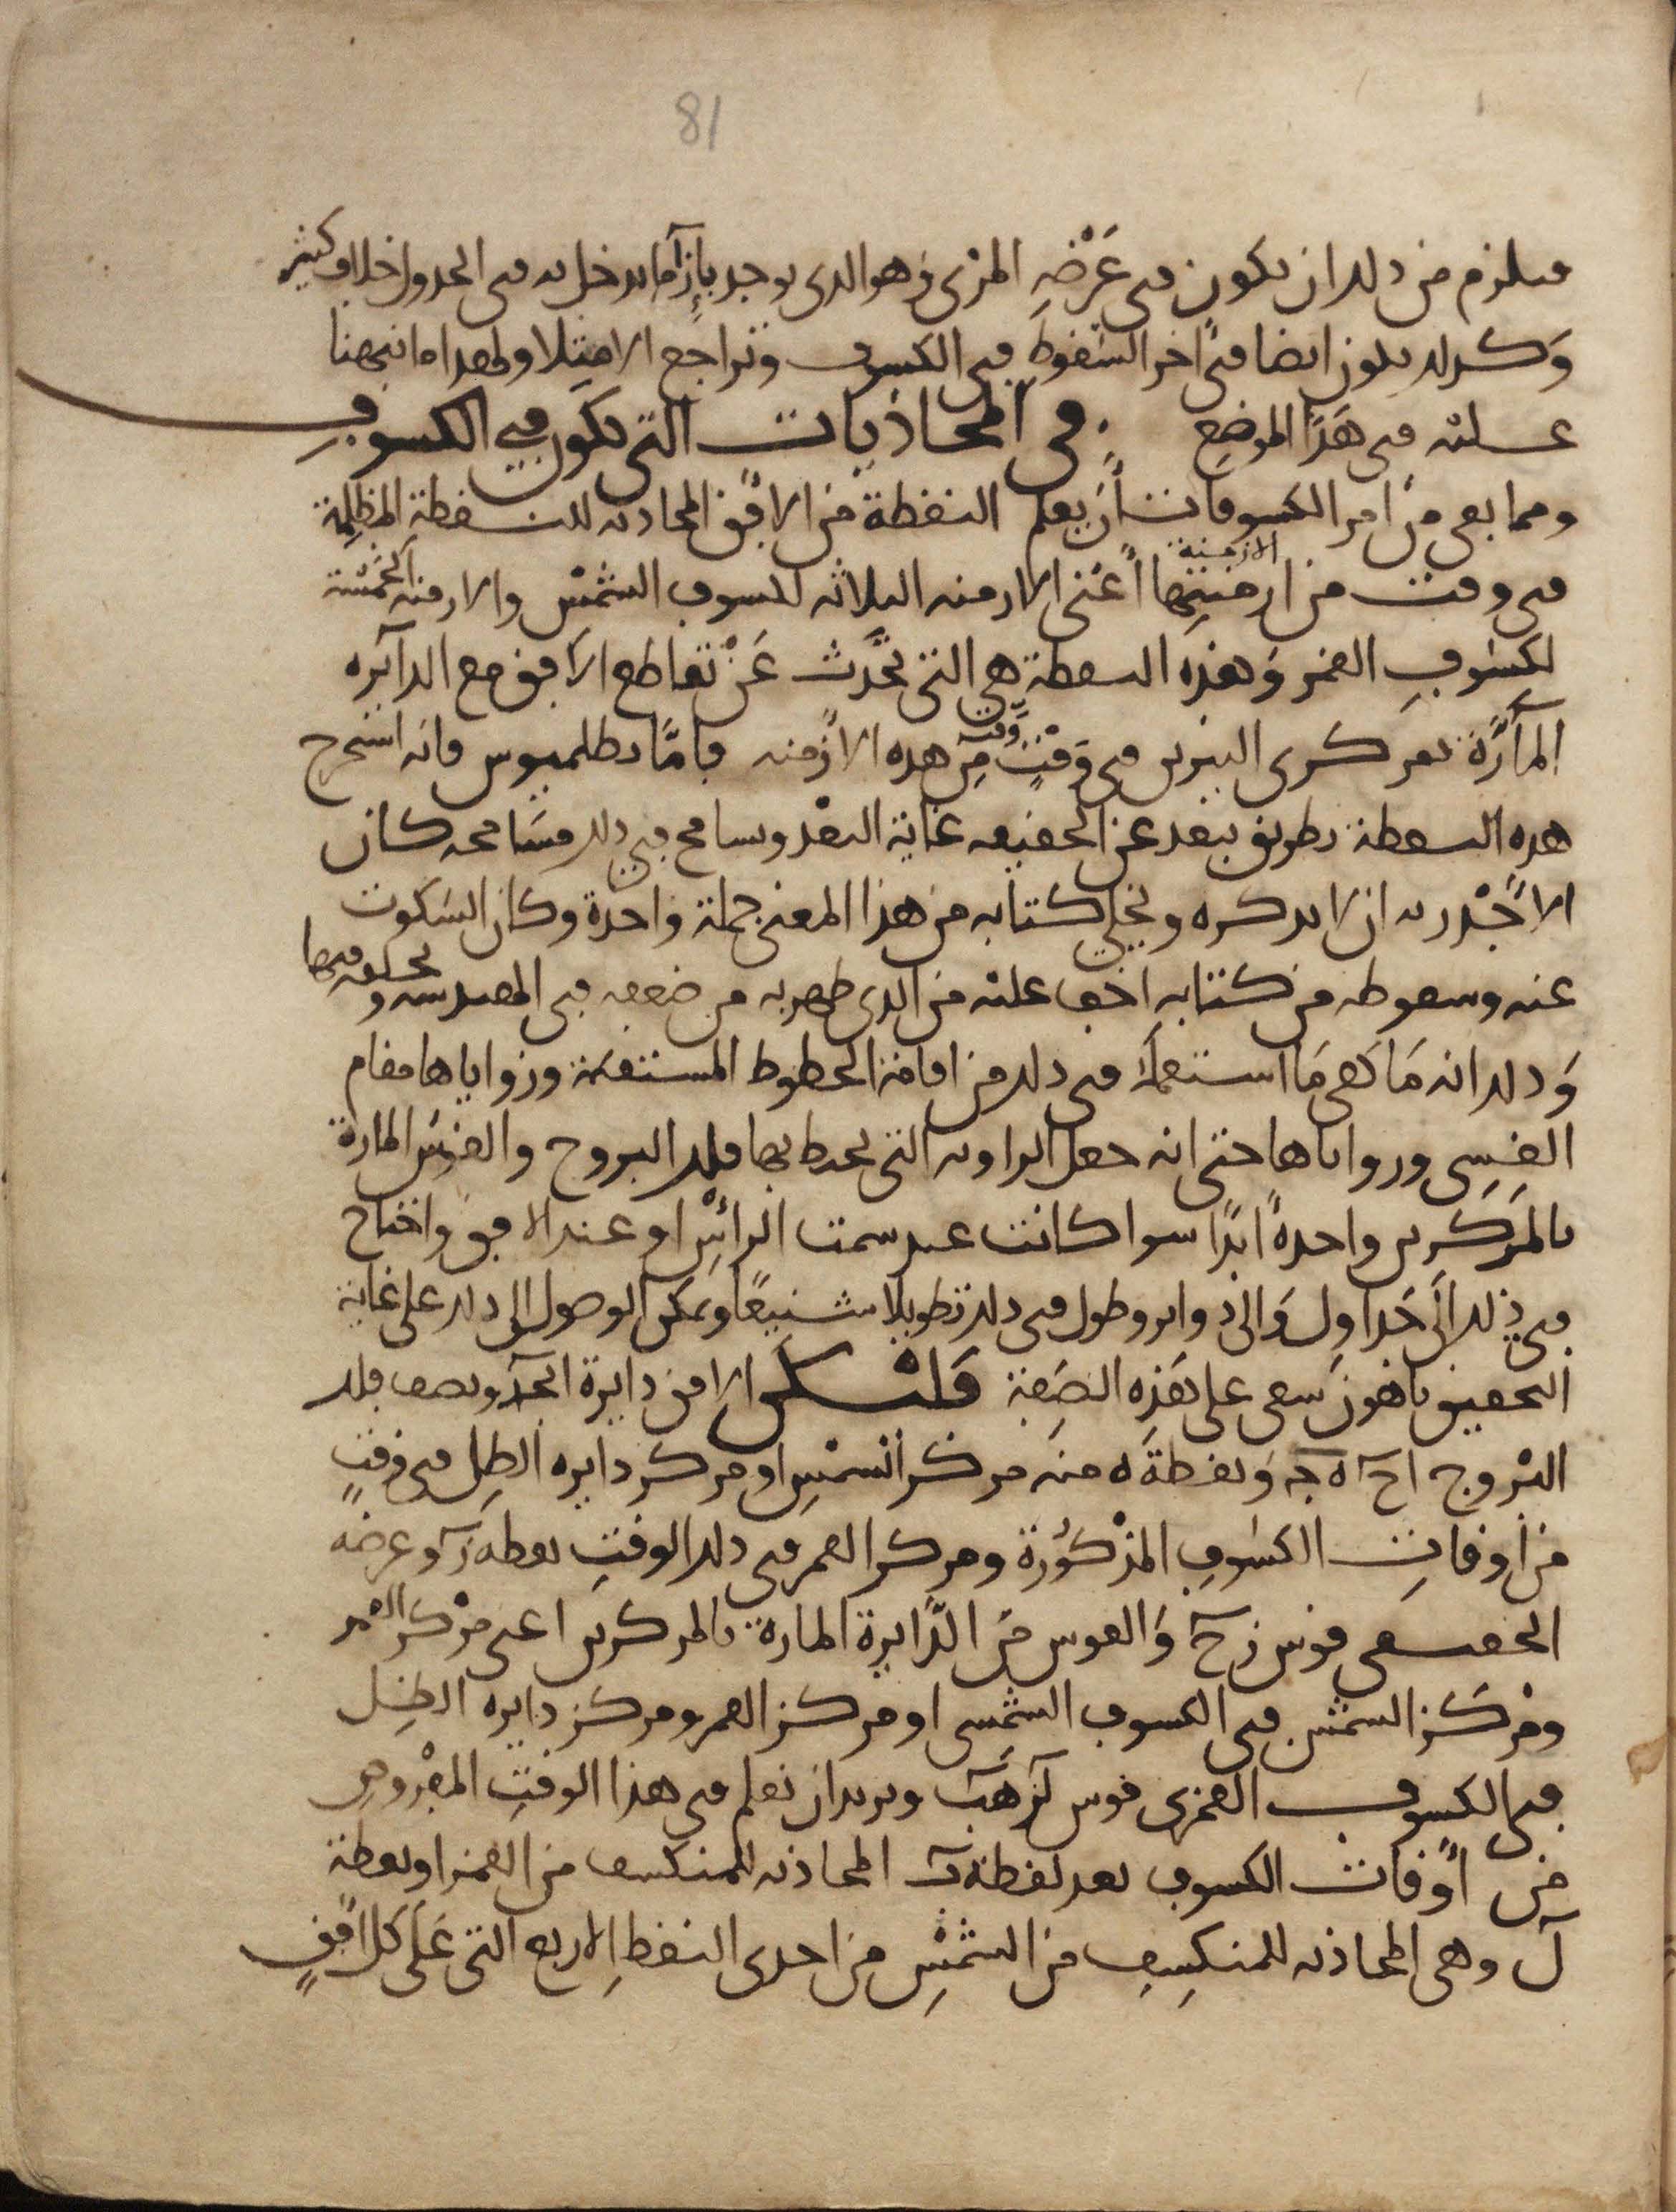 81
فيلزم من ذلك ان يكون في عَرْضِهِ المرْئي وهو الذي يوجد بإزآ ما يدخل به في الجدول اختلاف كثير
وَكذلك يكون ايضا في اخر السقوط في الكسوف وتراجع الامتلا ولهذا ما انبهنا
عليه في هَذا الموضِع . في المحاذيات التي تكون في الكسوفِ
ومما بقي من امر الكسوفات أن يعلم النقطة من الافق المحاذيه للنقطة المظلِمة
في وقت من ازمنتِها الازمنة أعْني الازمنه الثلاثه لكسوف الشمْس والازمنه الخمْسة
لكسَوفِ القمر وَهذه النقطة هي التي تحْدث عَنْ تقاطع الافق مع الدآيره
المآرّة بمركزي النيرين في وَقْتٍ وَقت مِن هذه الأزمنه فامّا بطلميوس فانه استخرج
هذه النقطة بطريق يبعد عن الحقيقه غاية البعْد وسامح في ذلك مسَامحه كان
الأجْدر به ان لا يذكره ويخلي كتابه من هذا المعنى جملة واحدة وكان السكوت
عنه وسقوطه من كتابه اخف عليْه من الذي ظهر به من ضعفه في الهندسه و فيها
وَذلك انه مَا كفي مَا استعمله في ذلك من اقامة الخطوط المستقيمَة وزواياها مقام
القِسِي وزواياها حتى انه جعل الزاويه التي يحيط بها فلك البروج والقوس المارة
بالمَركزين واحدةً ابدًا سوا كانت عند سمت الرائس او عند الافق واحتاج
في ذلك الَى جَداول وَالى دواير وطول في ذلك تطويلا شنيعًا ويمكن الوصول الى ذلك على غاية
التحقيق باهون سعي على هَذه الصِفة فلْيَكن الافق دايرة ابجد ونصف فلك
البْروج اح ه جـ وَنقطة ه منه مركز الشمْس او مركز دايره الظِل في وقتٍ
من أوقاتِ الكسَوفِ المذْكوُرة ومركز القمر في ذلك الوقتِ نقطه زَ وعرضه
الحقيقي قوس زح وَالقوس مِن الدّايرة المارة بالمركزين اعني مرْكز القمر
ومْركز الشمْس في الكسوف الشمْسي او مركز القمر ومركز دايره الظِل
في الكسوف القمري قوس لزهب ونريد ان نعلم في هذا الوقتِ المفْروضِ
من أوْقات الكسوف بعد نقطة ب المحاذيه للمنكسف من القمر او نقطة
ل وهي المحاذيه للمنكسِفِ من الشمْسِ من احدى النقطِ الاربع التي عَلى كل افقٍ